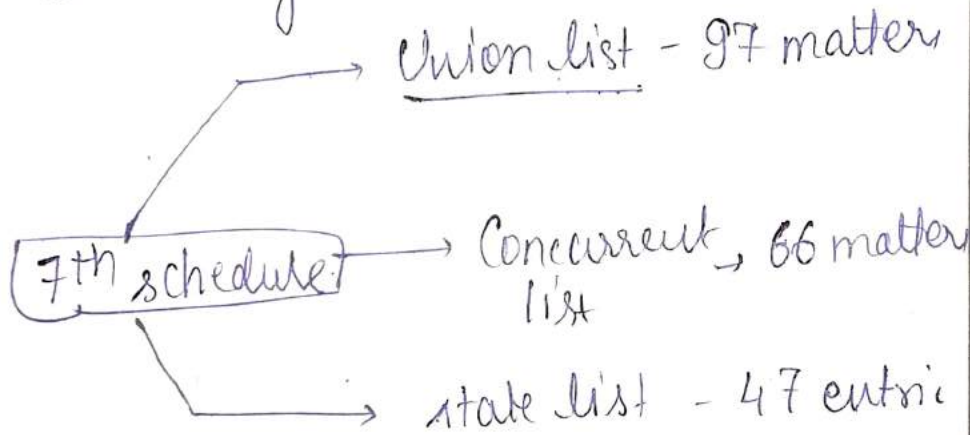 Union list - 97 matter
7th schedule
Concurrent → 66 matter
list
state list - 47 entri